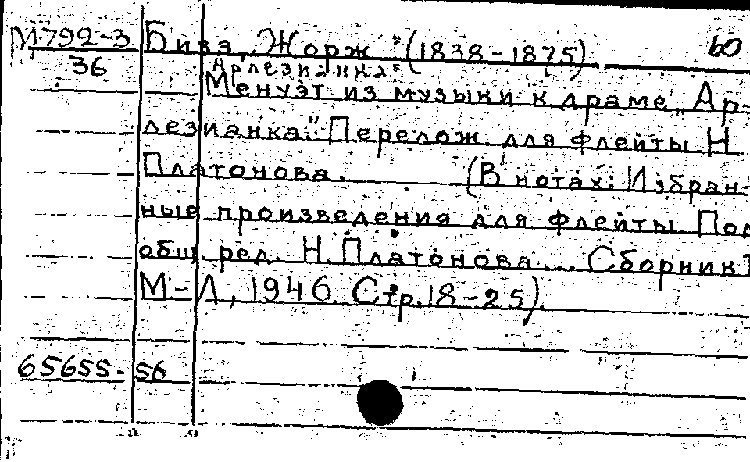 М792-3
36
Бизэ, Жорж (1838-1875)
60
"Арлезианка"
Менуэт из музыки к драме „Ар-
лезианка." Перелож. для флейты Н.
Платонова. (В нотах: Избран-
ные произведения для флейты Под
общ. ред. Н. Платонова... Сборник 1
М-Л, 1946 Стр. 18-25)
65655-56